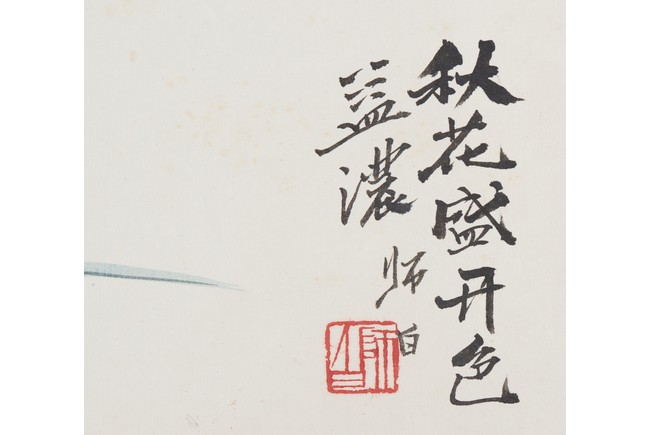 秋花盛开色
益濃
师白